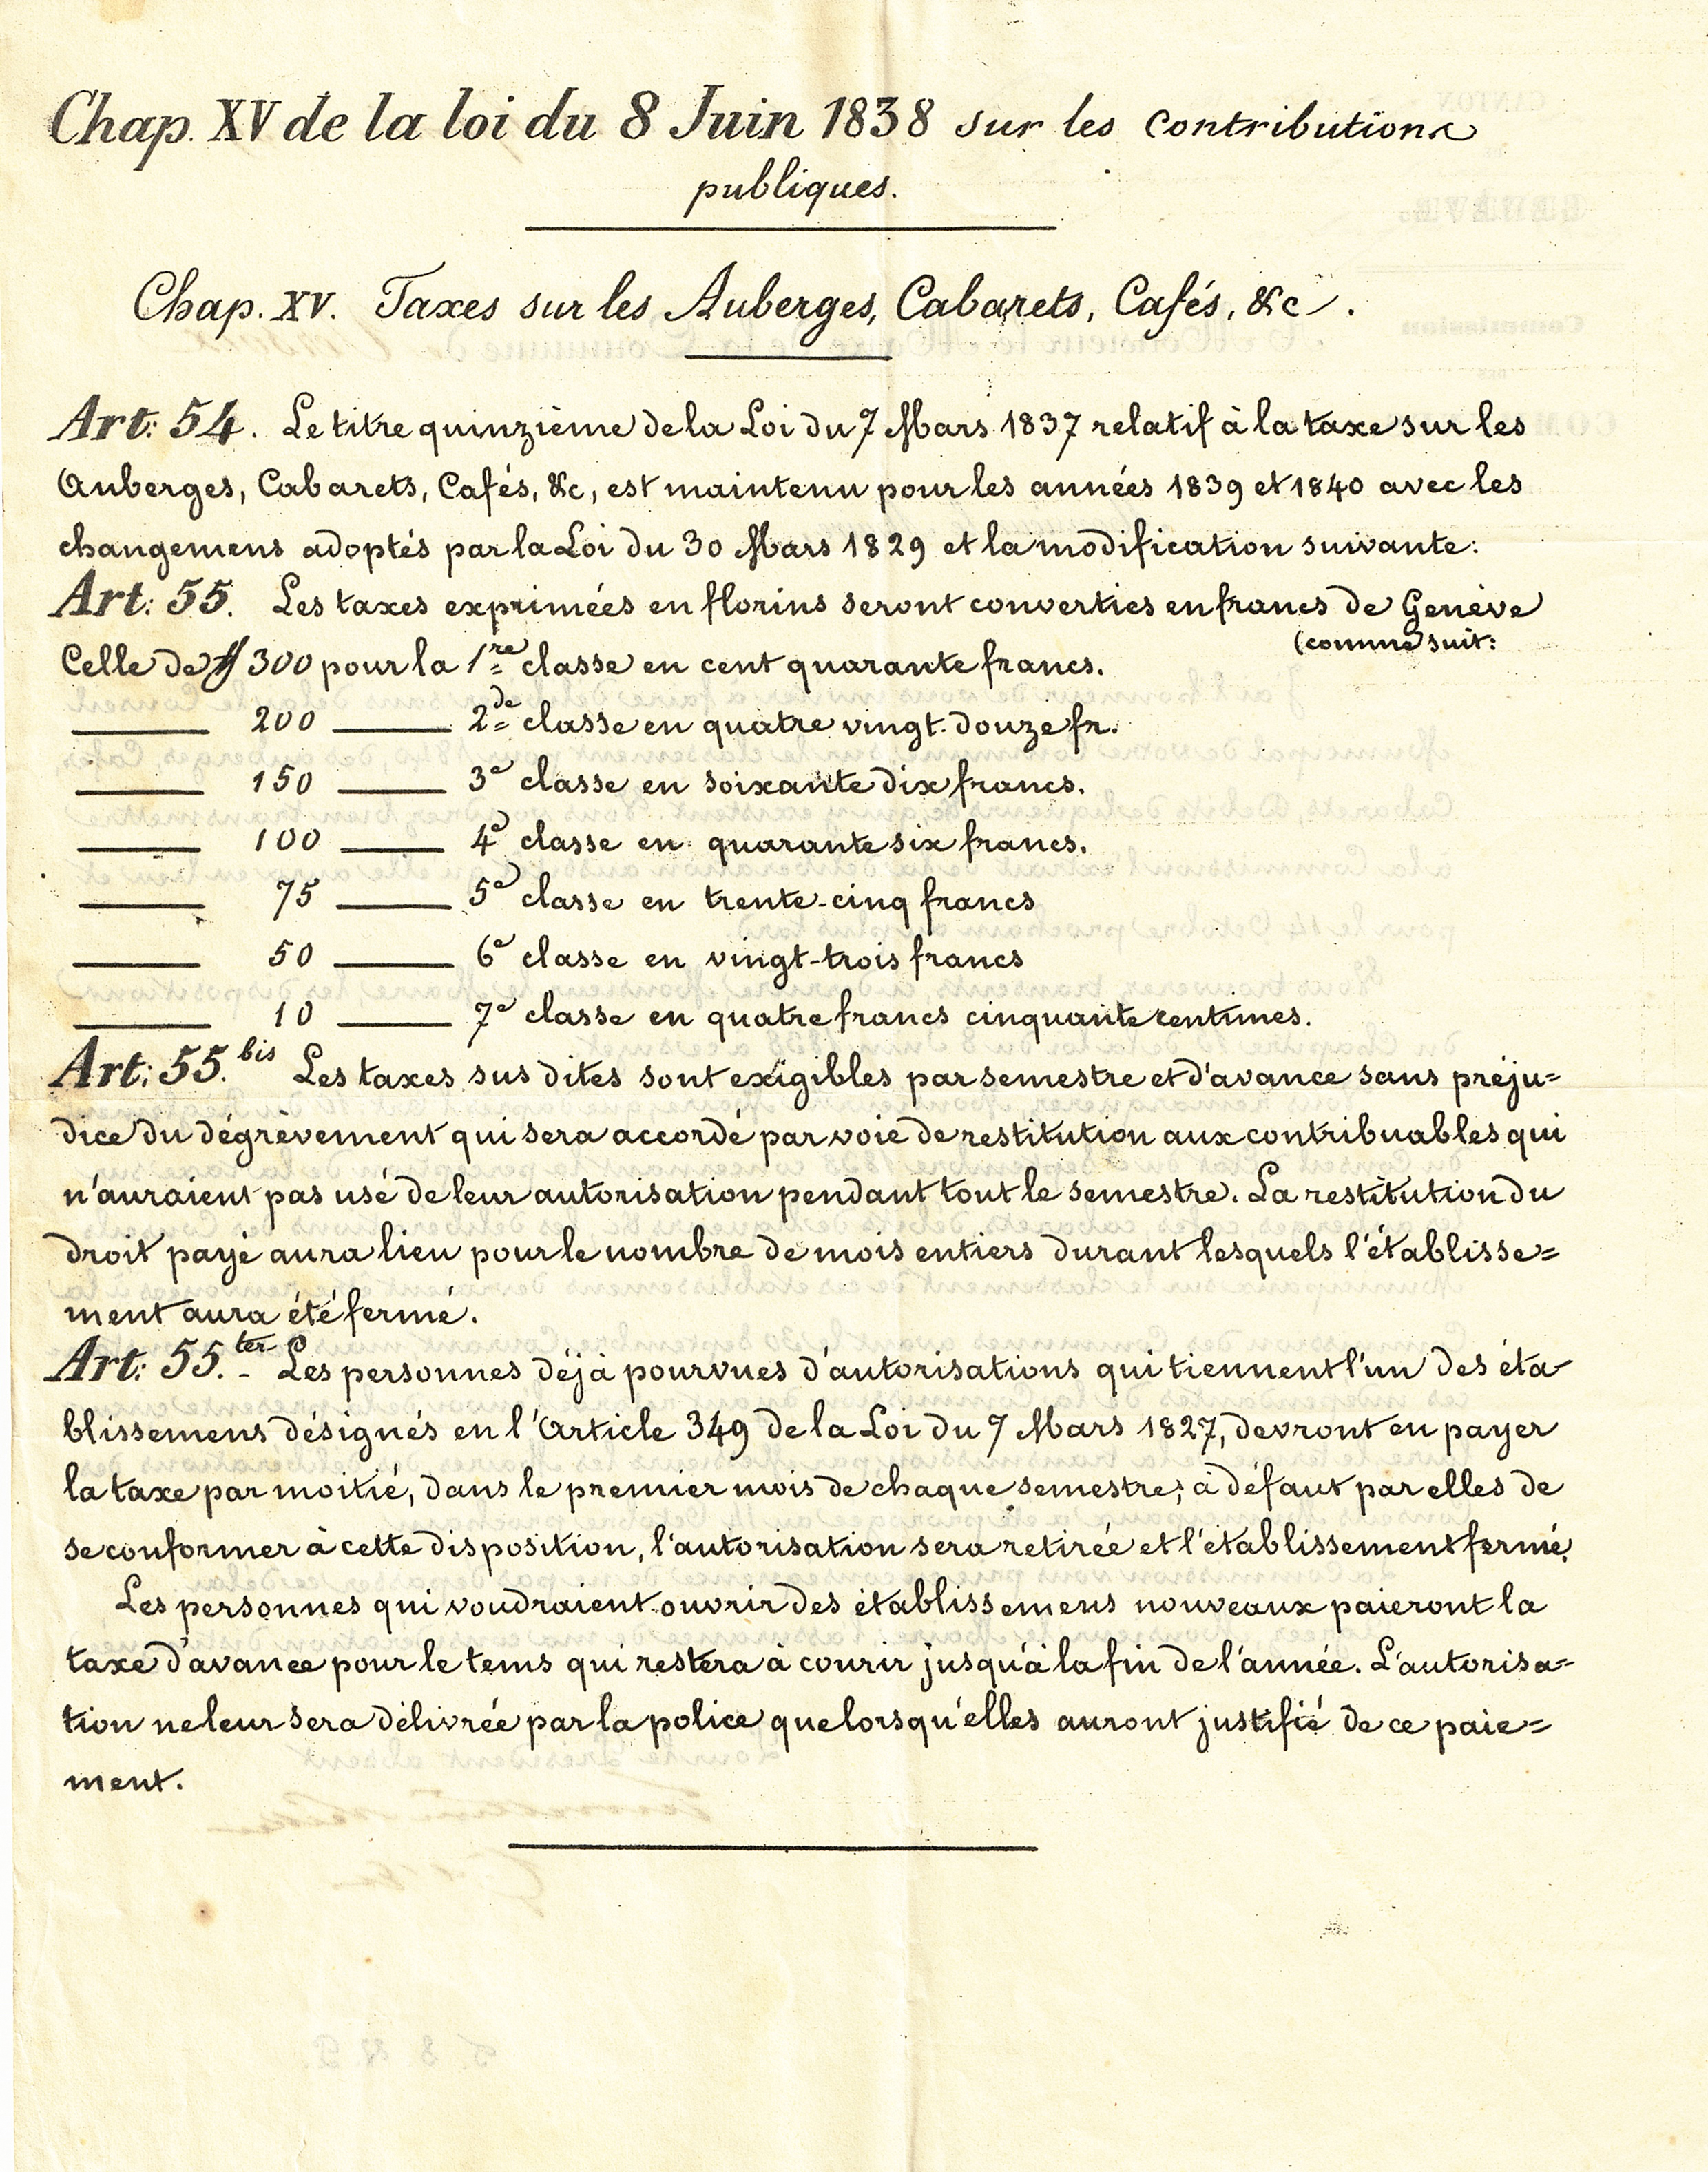 Chap. XV de la loi du 8 Juin 1838 sur les contributions
publiques.
Chap. XV. Taxes sur les Auberges, Cabarets, Cafés, &c.
Art: 54. Le titre quinzième de la Loi du 7 Mars 1837 relatif à la taxe sur les
Auberges, Cabarets, Cafés, &c, est maintenu pour les années 1839 et 1840 avec les
changemens adoptés par la Loi du 30 Mars 1829 et la modification suivante:
Art: 55. Les taxes exprimées en florins seront converties en francs de Genève
(comme suit:
Celle de ff 300 pour la 1re classe en cent quarante francs.
——— 200 ——— 2de classe en quatre vingt-douze fr.
——— 150 ——— 3e classe en soixante dix francs.
——— 100 ——— 4e classe en quarante six francs.
——— 75 ——— 5e classe en trente-cinq francs
——— 50 ——— 6e classe en vingt-trois francs
——— 10 ——— 7e classe en quatre francs cinquante centimes.
Art: 55.bis Les taxes sus dites sont exigibles par semestre et d'avance sans préju=
dice du dégrèvement qui sera accordé par voie de restitution aux contribuables qui
n'auraient pas usé de leur autorisation pendant tout le semestre. La restitution du
droit payé aura lieu pour le nombre de mois entiers durant lesquels l'établisse=
ment aura été fermé.
Art: 55.ter - Les personnes déjà pourvues d'autorisations qui tiennent l'un des éta-
blissemens désignés en l'Article 349 de la Loi du 7 Mars 1827, devront en payer
la taxe par moitié, dans le premier mois de chaque semestre; à défaut par elles de
se conformer à cette disposition, l'autorisation sera retirée et l'établissement fermé.
Les personnes qui voudraient ouvrir des établissemens nouveaux paieront la
taxe d'avance pour le tems qui restera à courir jusqu'à la fin de l'année. L'autorisa=
tion ne leur sera délivrée par la police que lorsqu'elles auront justifié de ce paie=
ment.